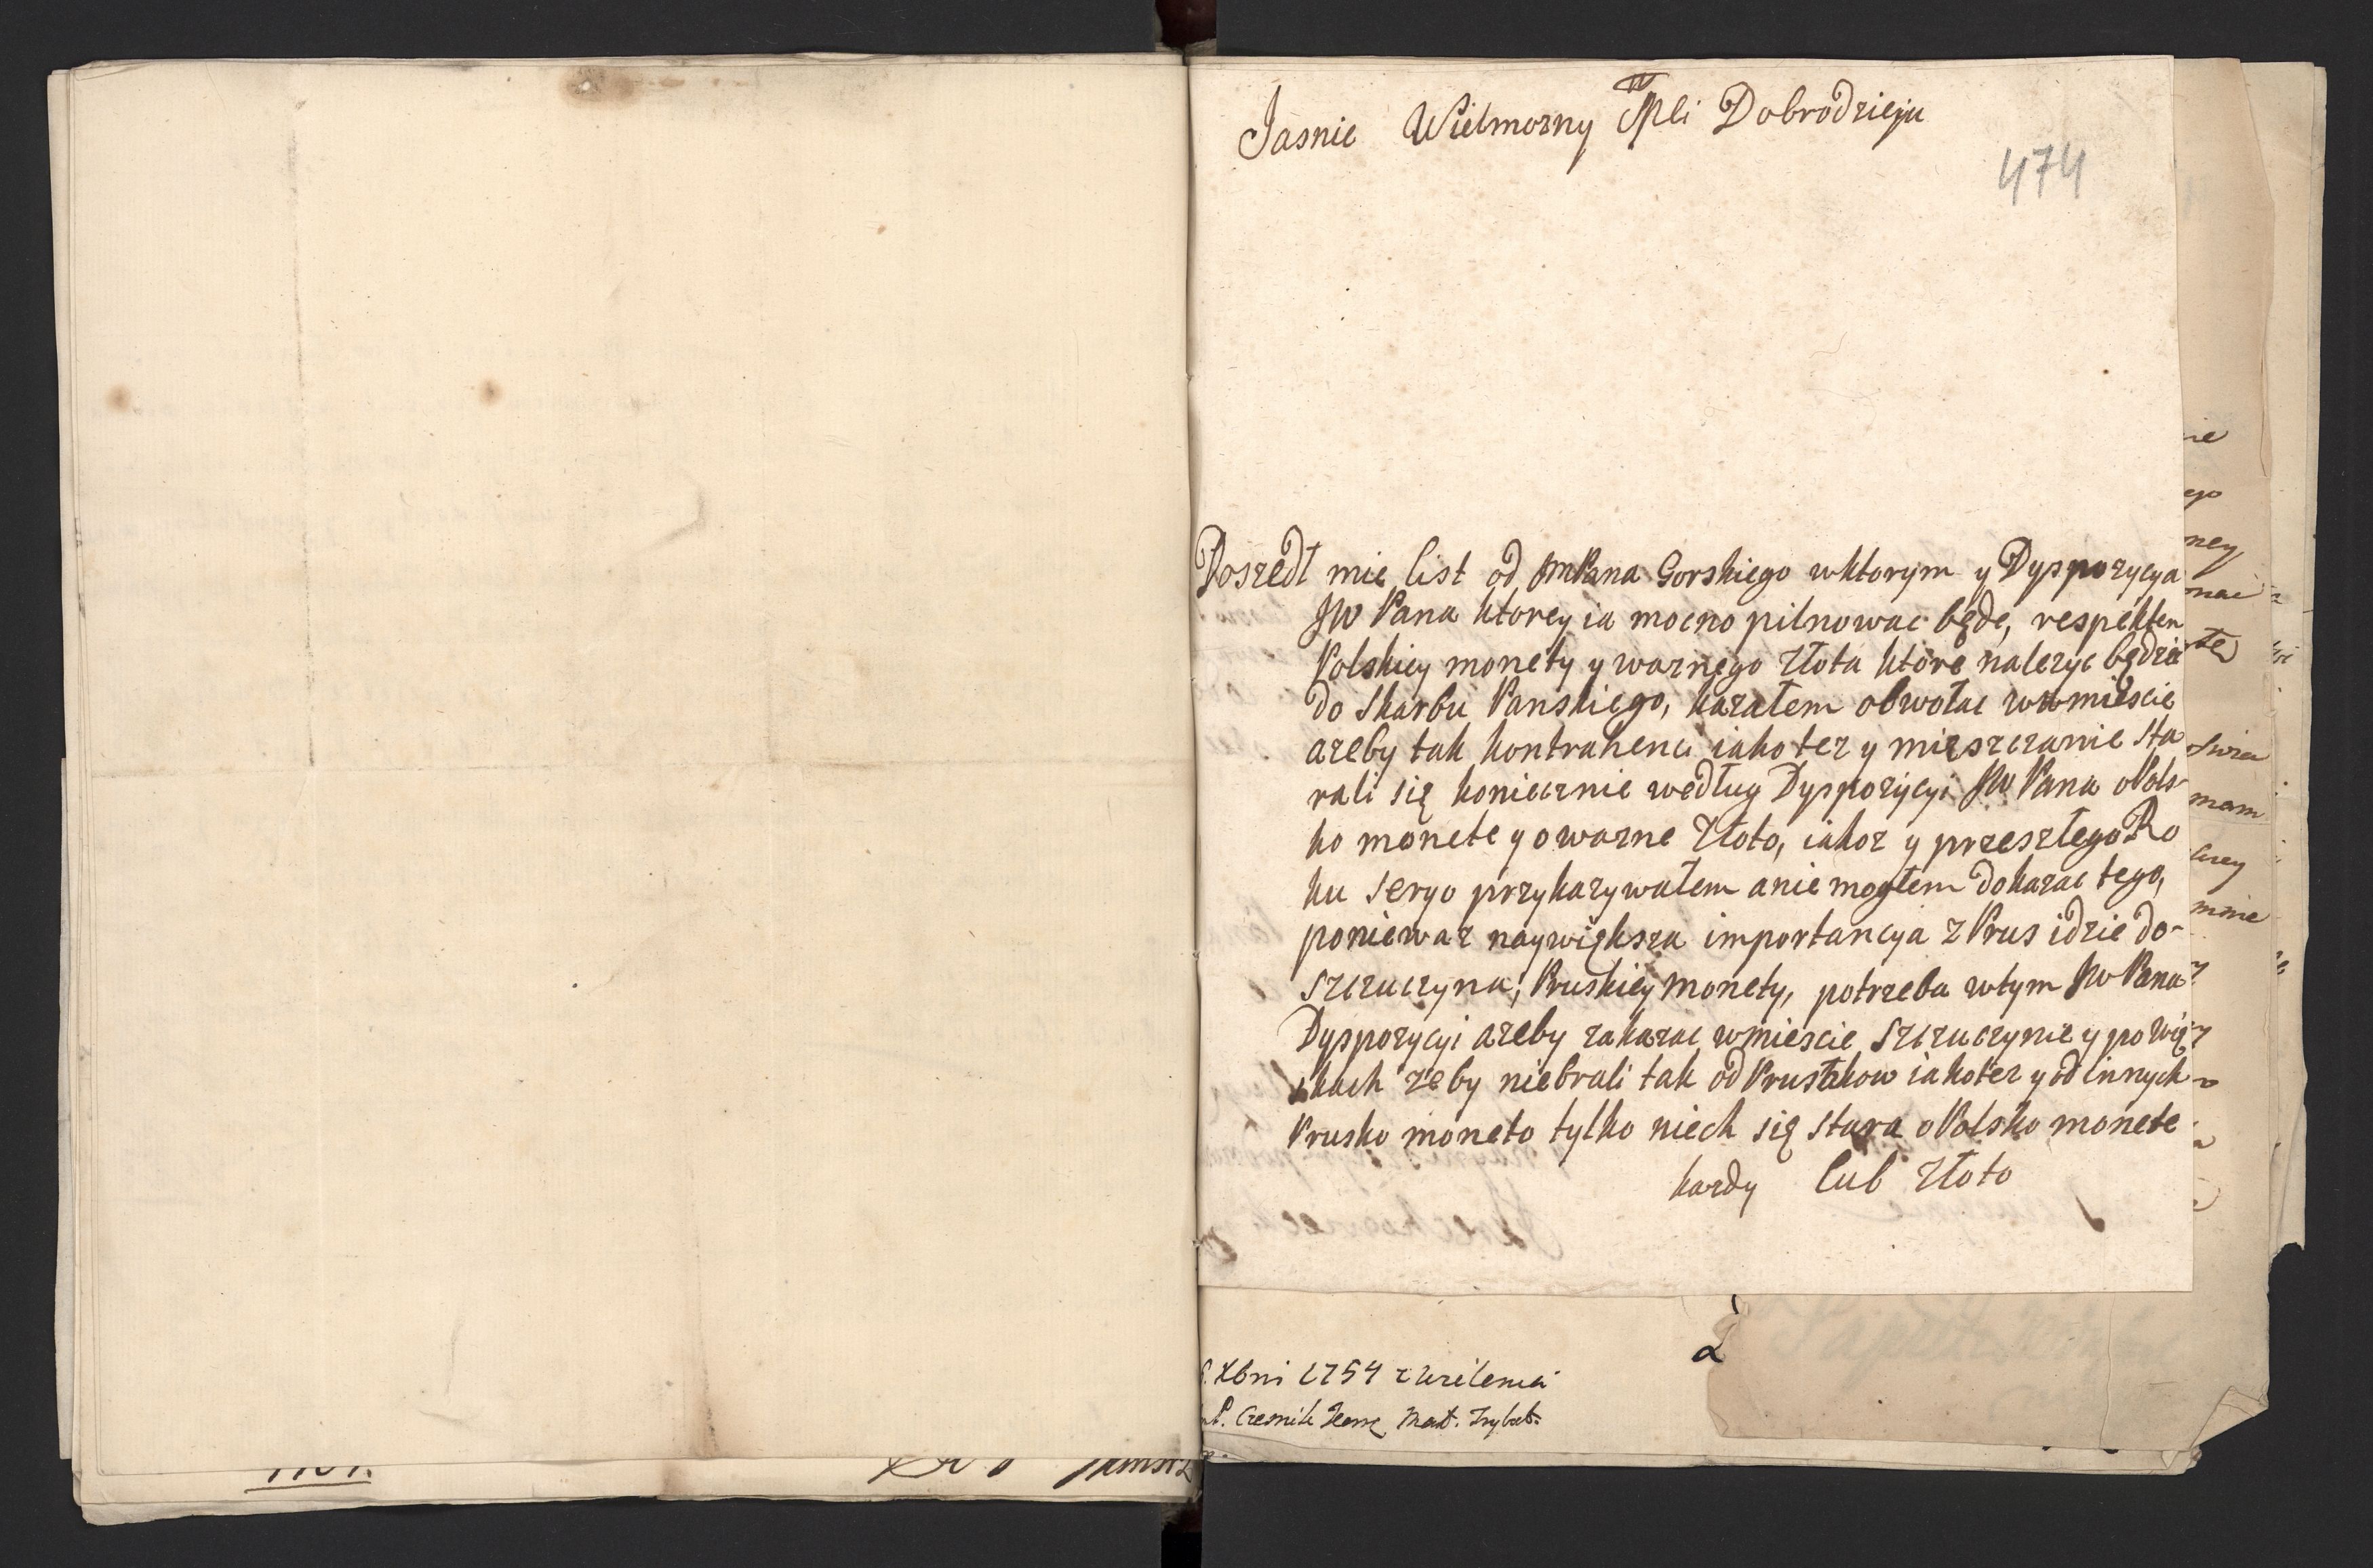 Jasnie Wielmozny Mśći Dobrodzieju
474
Doszedł mie list od JmPana Gorskiego wktorym y Dyspozycya
JW Pana ktorey ia mocno pilnowac będe, respektem
Polskiey monety y waznego złota ktore nalezyc będzie
do Skarbu Panskiego, kazałem obwołac wmiescie
azeby tak kontrahenci iako tez y mięszczanie sta
rali się koniecznie według Dyspozycyi JW Pana oPols-
ko monete y o wazne złoto, iakoz y przeszłego Ro
ku seryo przykazywałem anie mogłem dokazac tego,
poniewaz naywiększa importancya z Prus idzie do-
Szczuczyna; Pruskiey monety, potrzeba wtym JW Pana
Dyspozycyi azeby zakazac wmiescie Szczuczynie y powię
kach zeby niebrali tak od Prusakow iakotez y od innych
Prusko moneto tylko niech się stara oPolsko monete
kazdy lub złoto
Xbri 1754 z Wilenia
P. Czesnik
ie
ego
ney
nac
te
mam
mnie